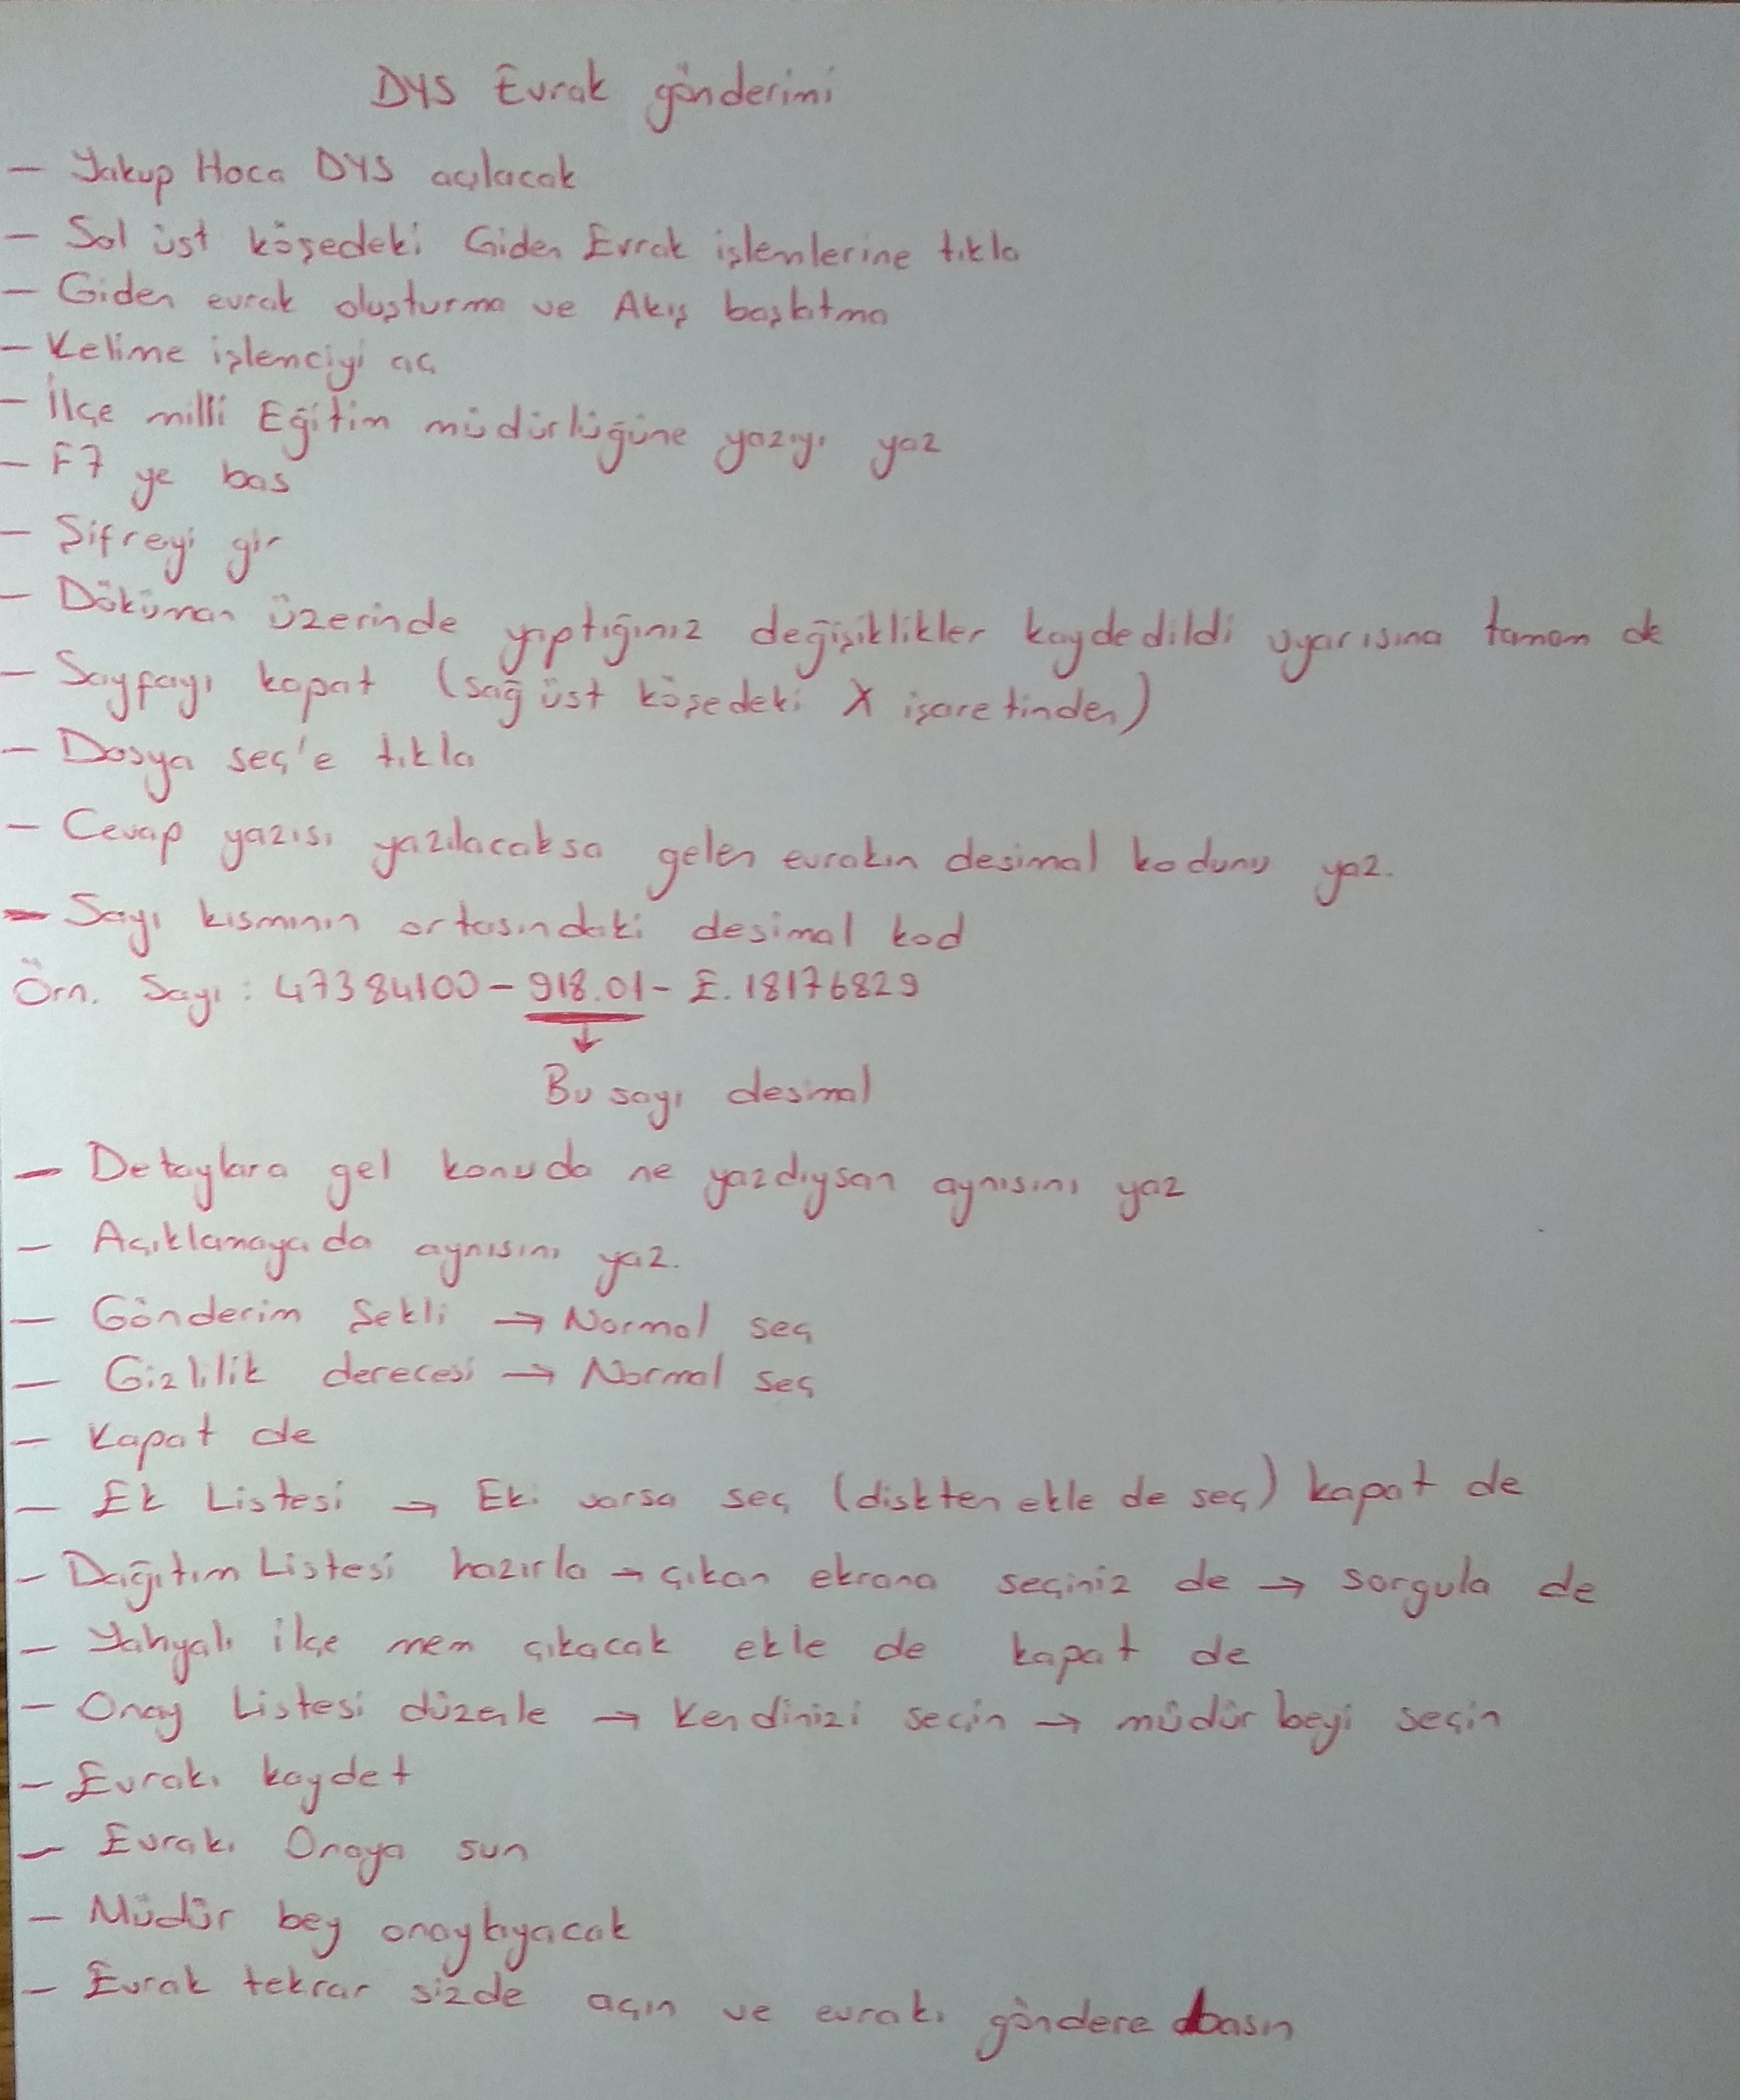 DYS Evrak gönderimi
— Yakup Hoca DYS açılacak
— Sol üst köşedeki Giden Evrak işlemlerine tıkla
— Giden evrak oluşturma ve Akış başlatma
— Kelime işlenciyi aç
— İlçe milli Eğitim müdürlüğüne yazıyı yaz
— F7 ye bas
— Şifreyi gir
— Döküman üzerinde yaptığınız değişiklikler kaydedildi uyarısına tamam de
— Sayfayı kapat (sağ üst köşedeki X işaretinden)
— Dosya seç'e tıkla
— Cevap yazısı yazılacaksa gelen evrakın desimal kodunu yaz.
— Sayı kısmının ortasındaki desimal kod
Örn. Sayı : 47384100 - 918.01 - E. 18176829
↓
Bu sayı desimal
— Detaylara gel konuda ne yazdıysan aynısını yaz
— Açıklamaya da aynısını yaz.
— Gönderim Şekli → Normal seç
— Gizlilik derecesi → Normal seç
— Kapat de
— Ek Listesi → Eki varsa seç (diskten ekle de seç) kapat de
— Dağıtım Listesi hazırla → çıkan ekrana seçiniz de → sorgula de
— Yahyalı ilçe mem çıkacak ekle de kapat de
— Onay Listesi düzenle → Kendinizi seçin → müdür beyi seçin
— Evrakı kaydet
— Evrakı Onaya sun
— Müdür bey onaylayacak
— Evrak tekrar sizde açın ve evrakı göndere basın